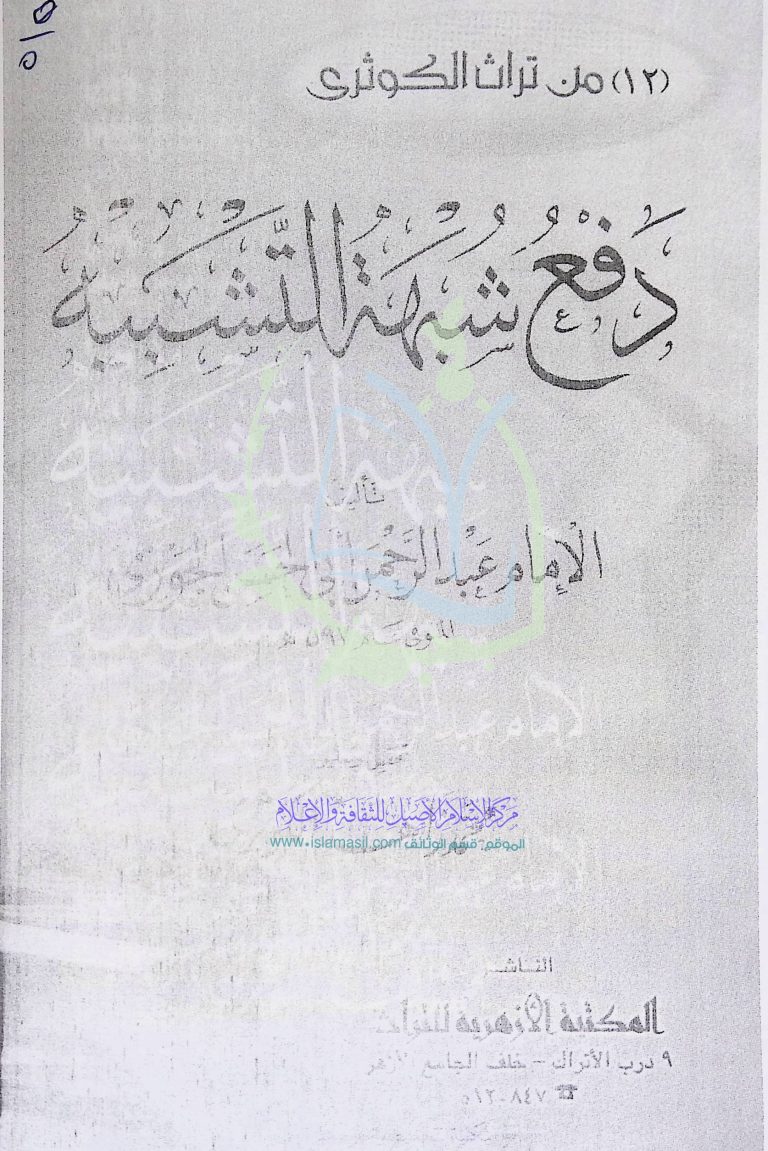 (١٢) من تراث الكوثرى
دَفْعُ شُبْهَةِ التَّشْبِيهِ
تأليف
الإمام عبد الرحمن أبي الحسن الجوزي
سنة ٥٩٧ هـ
مركز الإسلام الأصيل للثقافة والإعلام
الموقع - قسم الوثائق www.islamasil.com
الناشر
المكتبة الأزهرية للتراث
٩ درب الأتراك - خلف الجامع
☎ ٥١٢٠٨٤٧